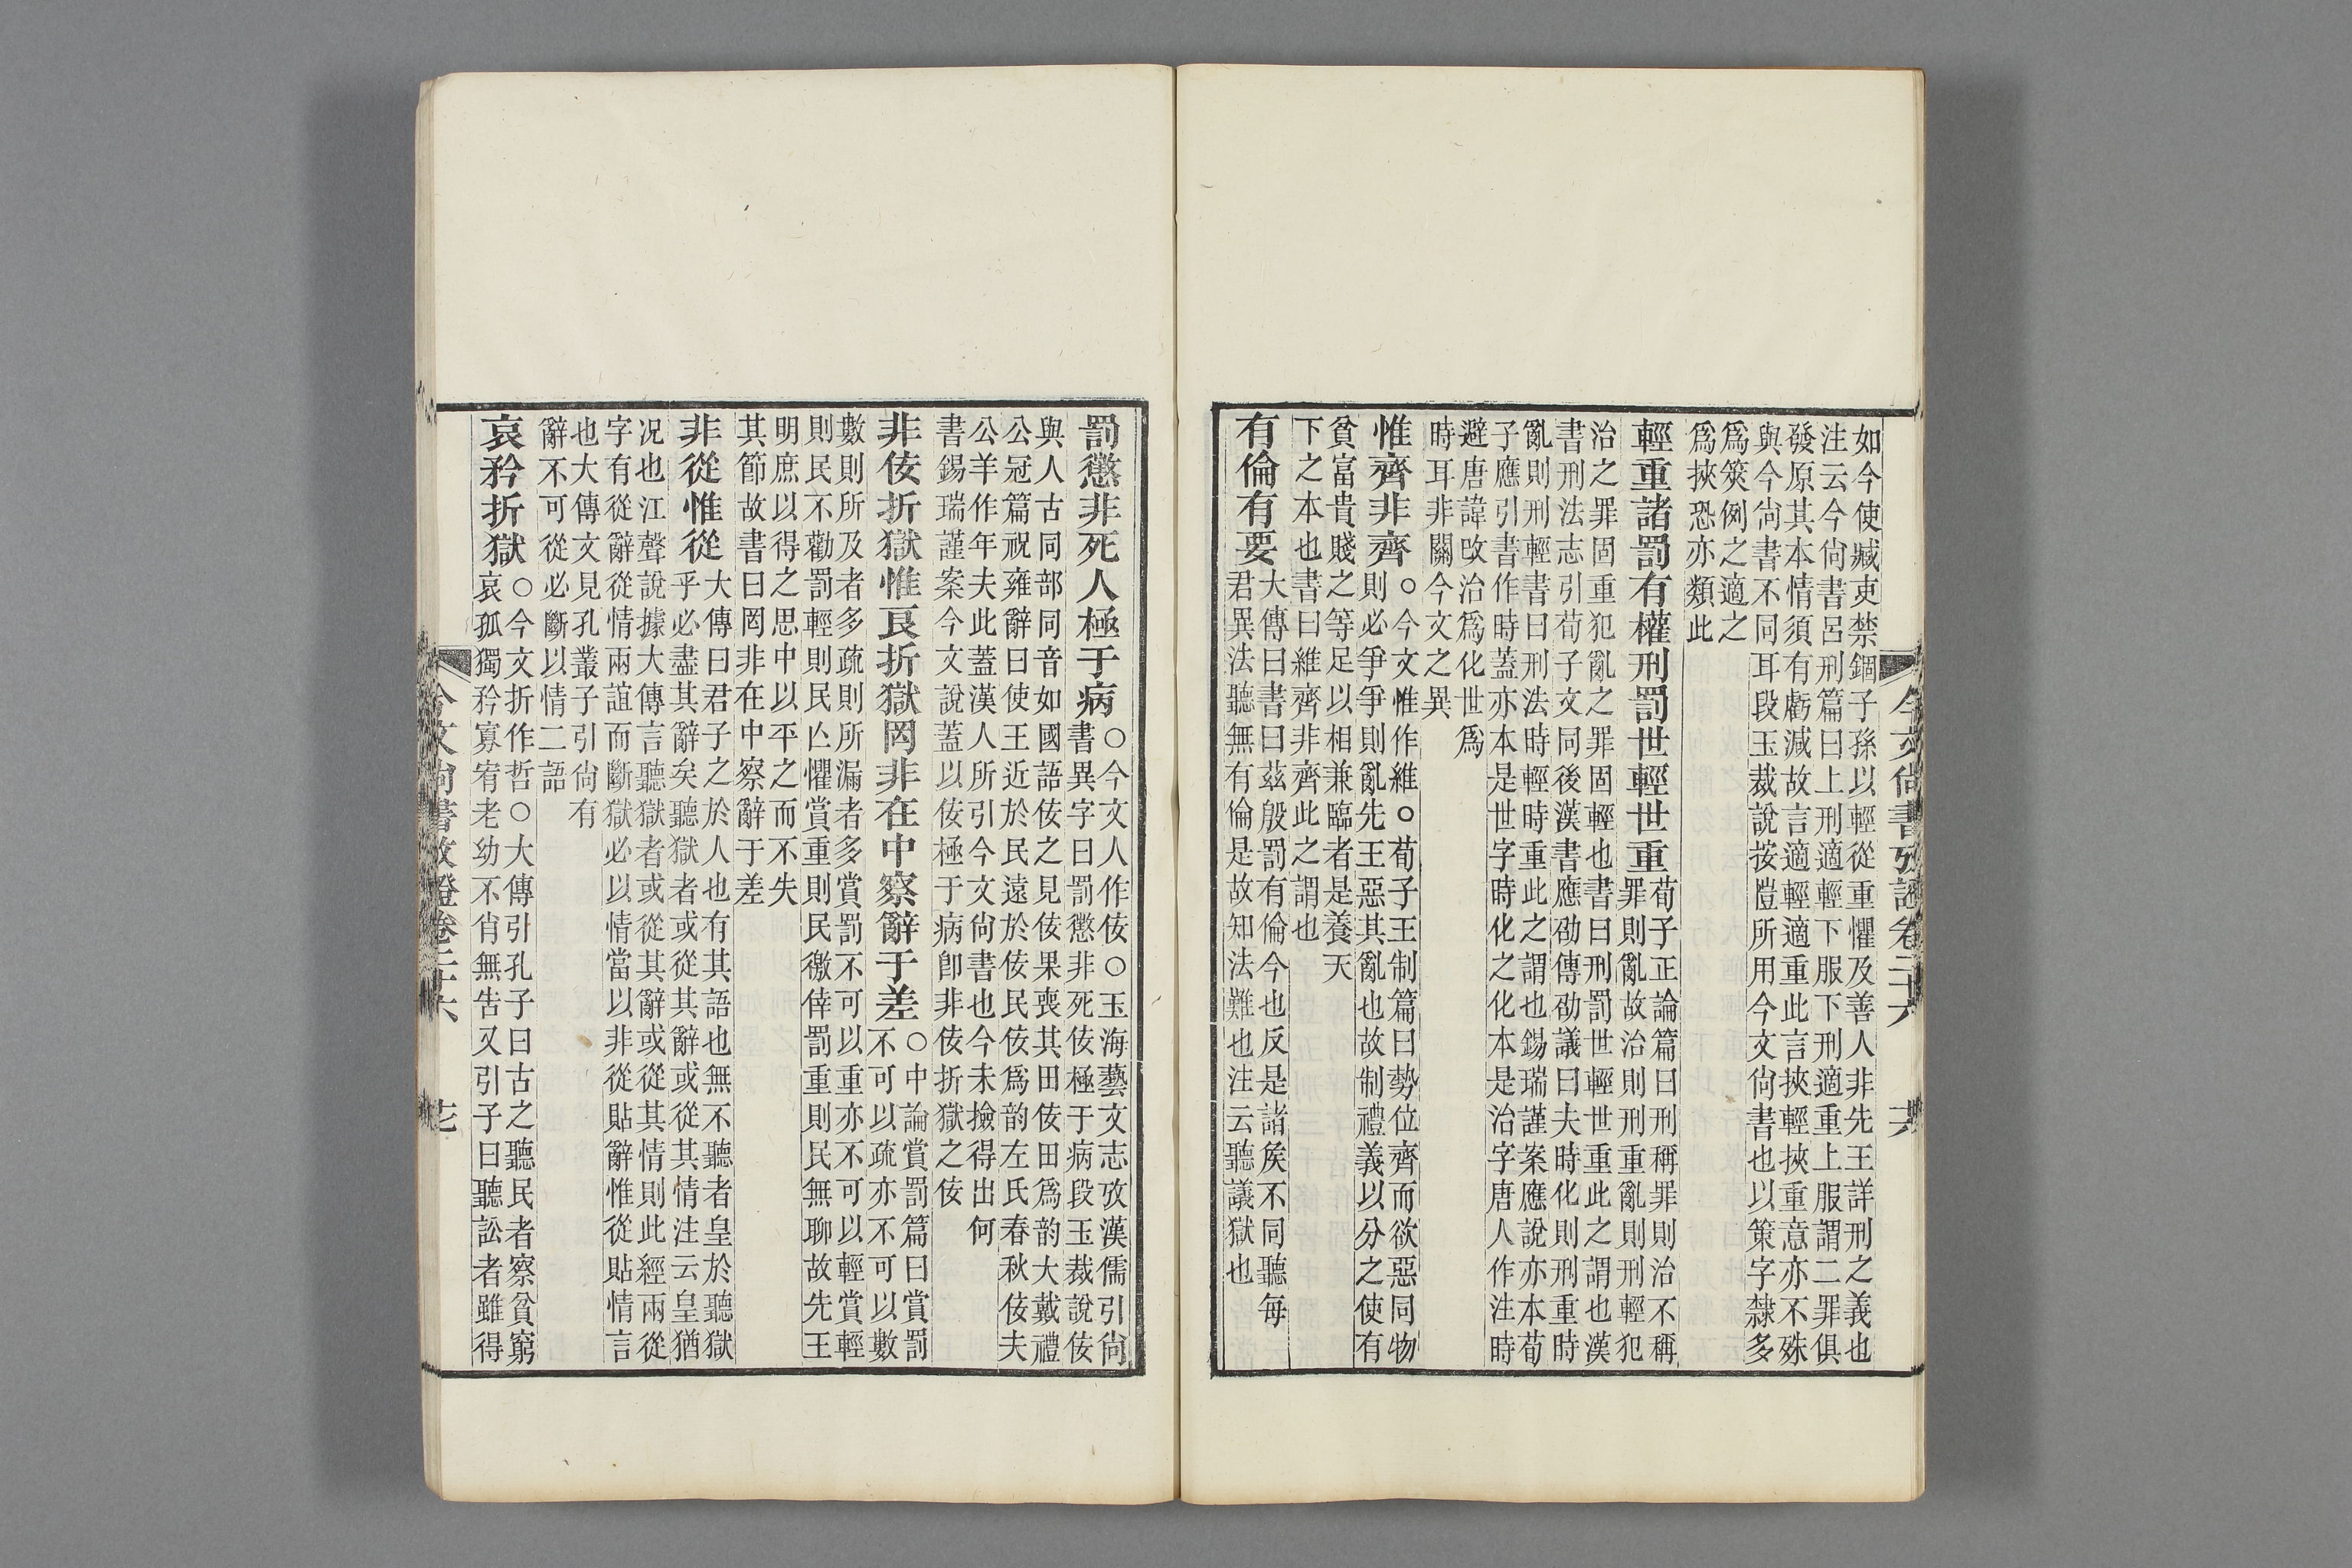 今文尙書攷證卷二十六
六
如今使臧吏禁錮子孫以輕從重懼及善人非先王詳刑之義也
注云今尙書呂刑篇曰上刑適輕下服下刑適重上服謂二罪俱
發原其本情須有虧減故言適輕適重此言挾輕挾重意亦不殊
與今尙書不同耳段玉裁說按愷所用今文尙書也以策字隸多
爲筴例之適之
爲挾恐亦類此
輕重諸罰有權刑罰世輕世重
荀子正論篇曰刑稱罪則治不稱
罪則亂故治則刑重亂則刑輕犯
治之罪固重犯亂之罪固輕也書曰刑罰世輕世重此之謂也漢
書刑法志引荀子文同後漢書應劭傳劭議曰夫時化則刑重時
亂則刑輕書曰刑法時輕時重此之謂也錫瑞謹案應說亦本荀
子應引書作時蓋亦本是世字時化之化本是治字唐人作注時
避唐諱改治爲化世爲
時耳非關今文之異
惟齊非齊
○今文惟作維○荀子王制篇曰勢位齊而欲惡同物
則必爭爭則亂先王惡其亂也故制禮義以分之使有
貧富貴賤之等足以相兼臨者是養天
下之本也書曰維齊非齊此之謂也
有倫有要
大傳曰書曰茲殷罰有倫今也反是諸矦不同聽每
君異法聽無有倫是故知法難也注云聽議獄也
罰懲非死人極于病
○今文人作佞○玉海藝文志攷漢儒引尙
書異字曰罰懲非死佞極于病段玉裁說佞
與人古同部同音如國語佞之見佞果喪其田佞田爲韵大戴禮
公冠篇祝雍辭曰使王近於民遠於佞民佞爲韵左氏春秋佞夫
公羊作年夫此蓋漢人所引今文尙書也今未撿得出何
書錫瑞謹案今文說蓋以佞極于病卽非佞折獄之佞
非佞折獄惟良折獄罔非在中察辭于差
○中論賞罰篇曰賞罰
不可以疏亦不可以數
數則所及者多疏則所漏者多賞罰不可以重亦不可以輕賞輕
則民不勸罰輕則民亾懼賞重則民徼倖罰重則民無聊故先王
明庶以得之思中以平之而不失
其節故書曰罔非在中察辭于差
非從惟從
大傳曰君子之於人也有其語也無不聽者皇於聽獄
乎必盡其辭矣聽獄者或從其辭或從其情注云皇猶
况也江聲說據大傳言聽獄者或從其辭或從其情則此經兩從
字有從辭從情兩誼而斷獄必以情當以非從貼辭惟從貼情言
也大傳文見孔叢子引尙有
辭不可從必斷以情二語
哀矜折獄
○今文折作哲○大傳引孔子曰古之聽民者察貧窮
哀孤獨矜寡宥老幼不肖無告又引子曰聽訟者雖得
今文尙書攷證卷二十六
七